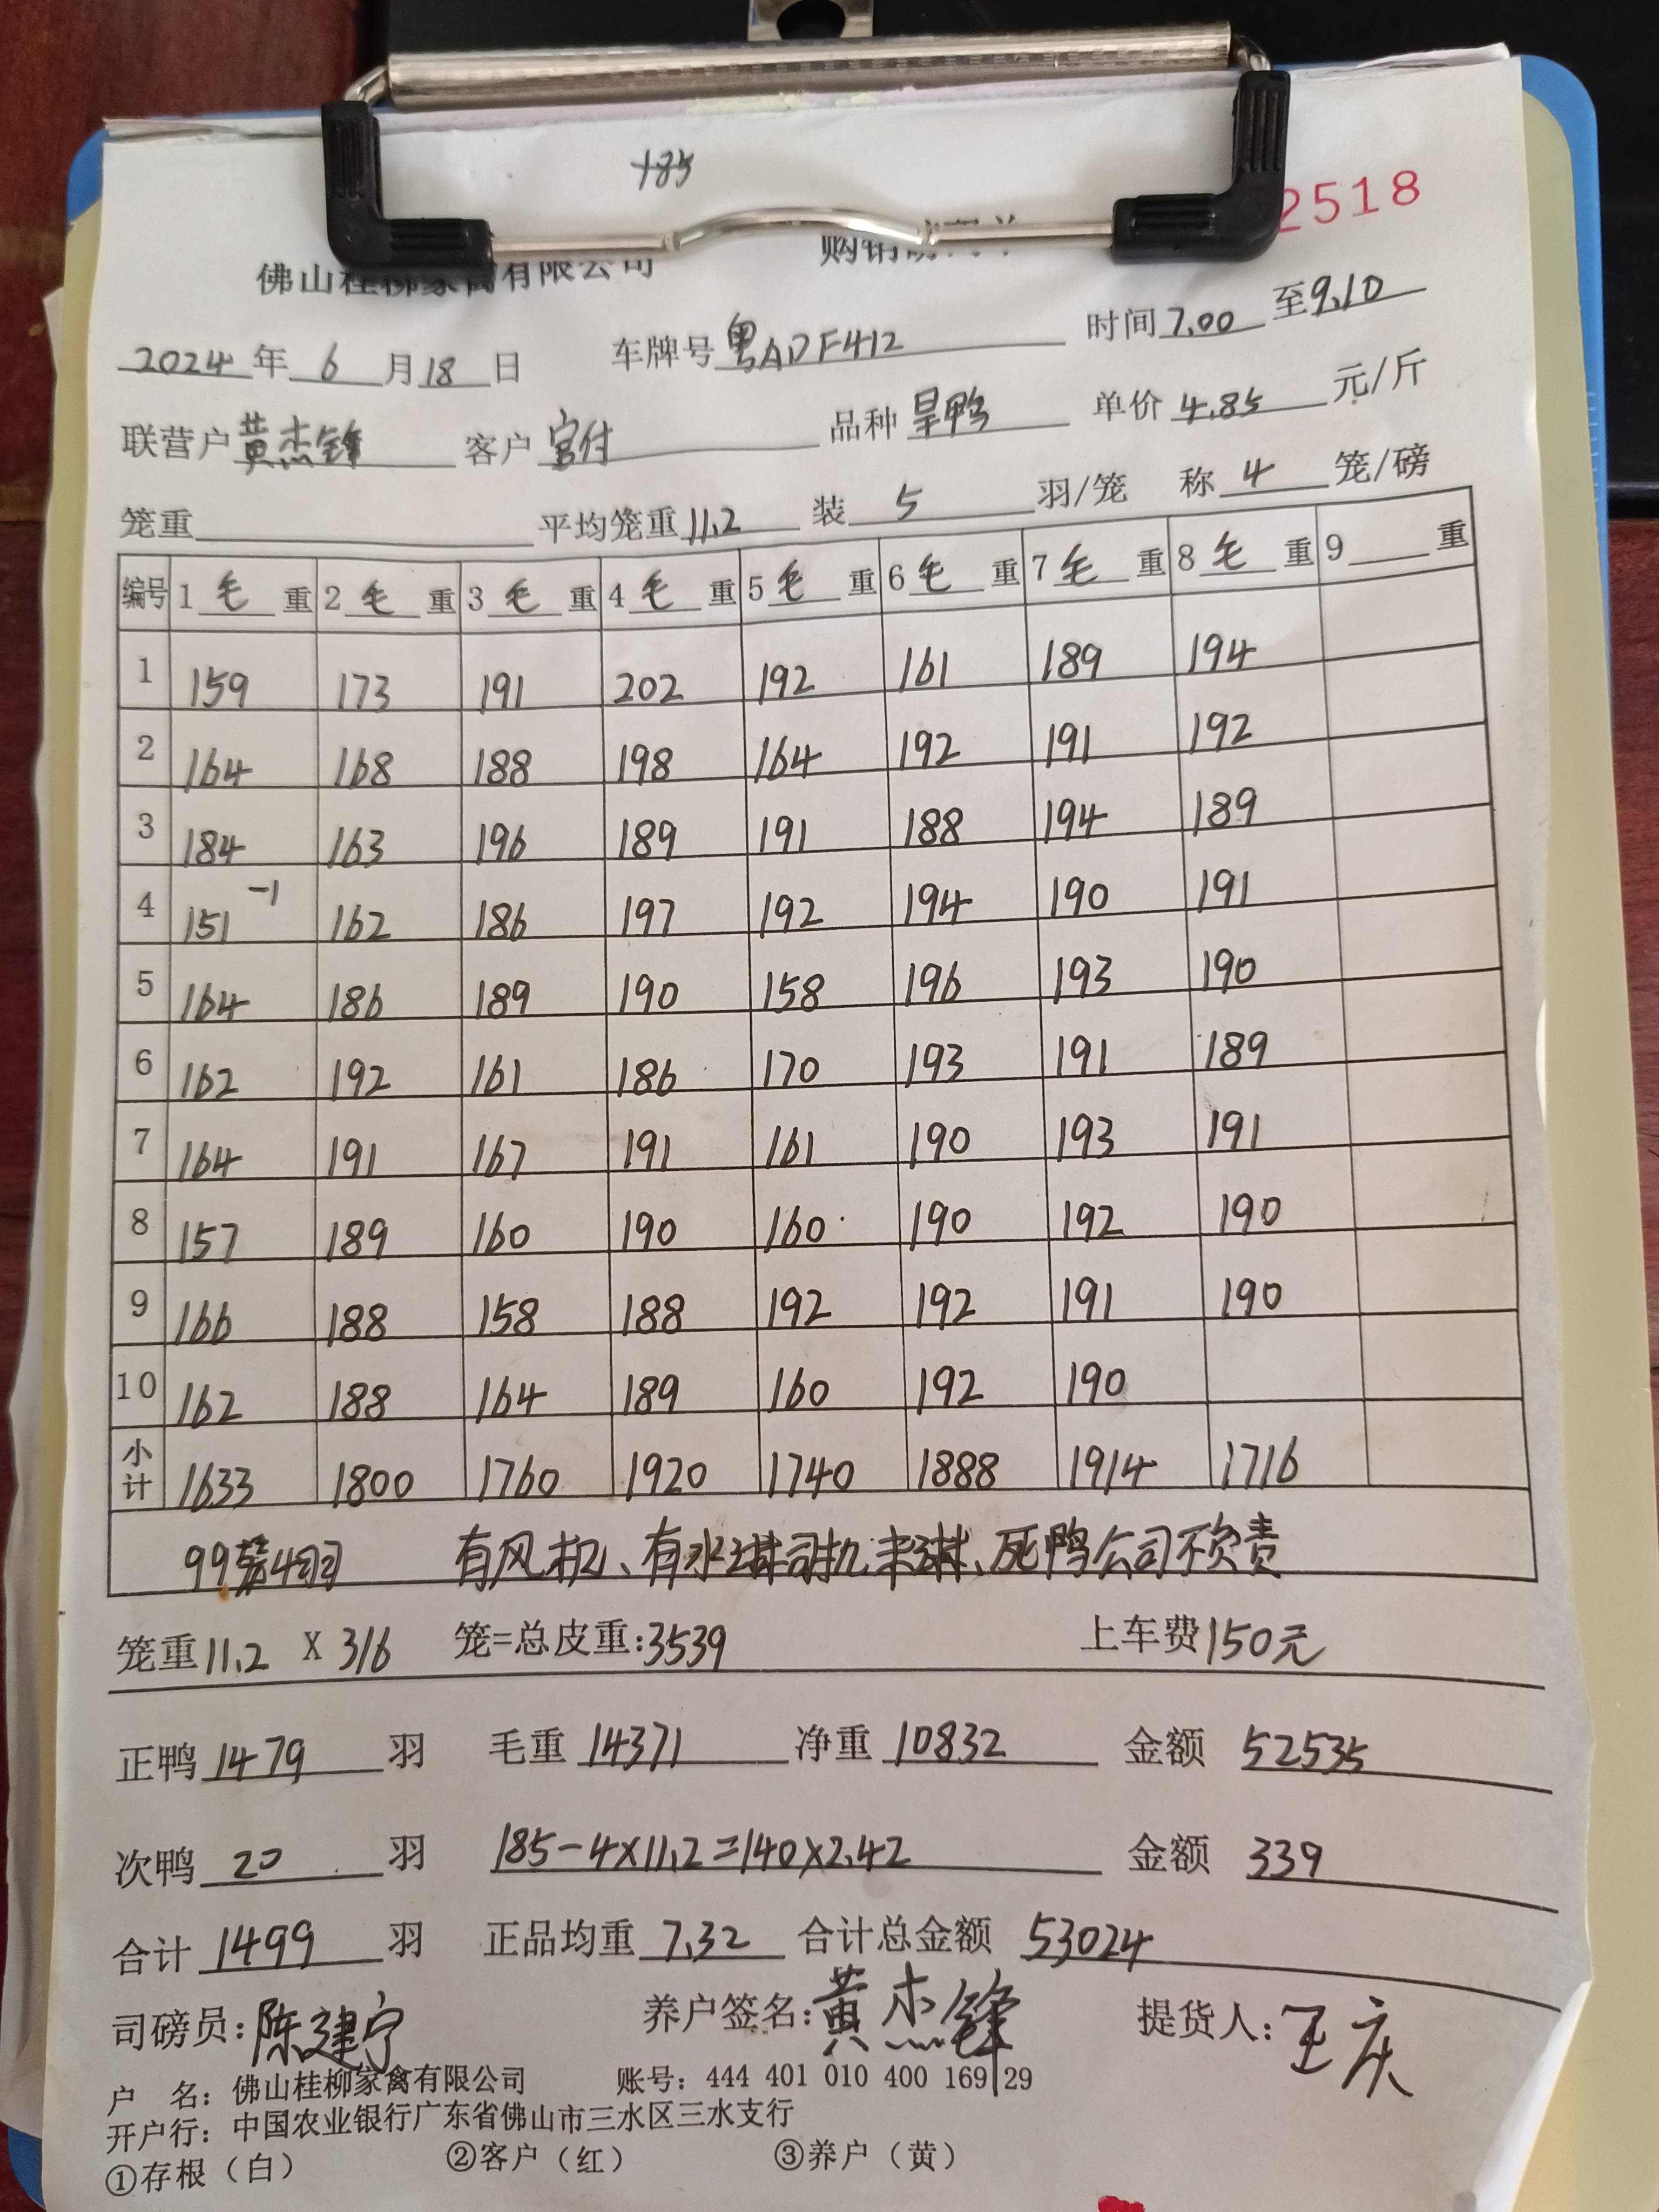 185
2518
佛山桂柳家禽有限公司 购销
2024年6月18日 车牌号粤ADF412 时间7.00至9.10
联营户黄杰锋 客户宫付 品种旱鸭 单价4.85元/斤
笼重 平均笼重11.2 装5羽/笼 称4笼/磅
编号 1毛重 2毛重 3毛重 4毛重 5毛重 6毛重 7毛重 8毛重 9重
1 159 173 191 202 192 161 189 194
2 164 168 188 198 164 192 191 192
3 184 163 196 189 191 188 194 189
4 151 -1 162 186 197 192 194 190 191
5 164 186 189 190 158 196 193 190
6 162 192 161 186 170 193 191 189
7 164 191 167 191 161 190 193 191
8 157 189 160 190 160 190 192 190
9 166 188 158 188 192 192 191 190
10 162 188 164 189 160 192 190
小计 1633 1800 1760 1920 1740 1888 1914 1716
99装4羽 有风机、有水淋司机未淋、死鸭公司不负责
笼重11.2 X 316 笼=总皮重:3539 上车费150元
正鸭1479羽 毛重14371 净重10832 金额52535
次鸭20羽 185-4×11.2=140×2.42 金额339
合计1499羽 正品均重7.32 合计总金额53024
司磅员:陈建宁 养户签名:黄杰锋 提货人:王庆
户 名:佛山桂柳家禽有限公司 账号:444 401 010 400 169 29
开户行:中国农业银行广东省佛山市三水区三水支行
①存根(白) ②客户(红) ③养户(黄)